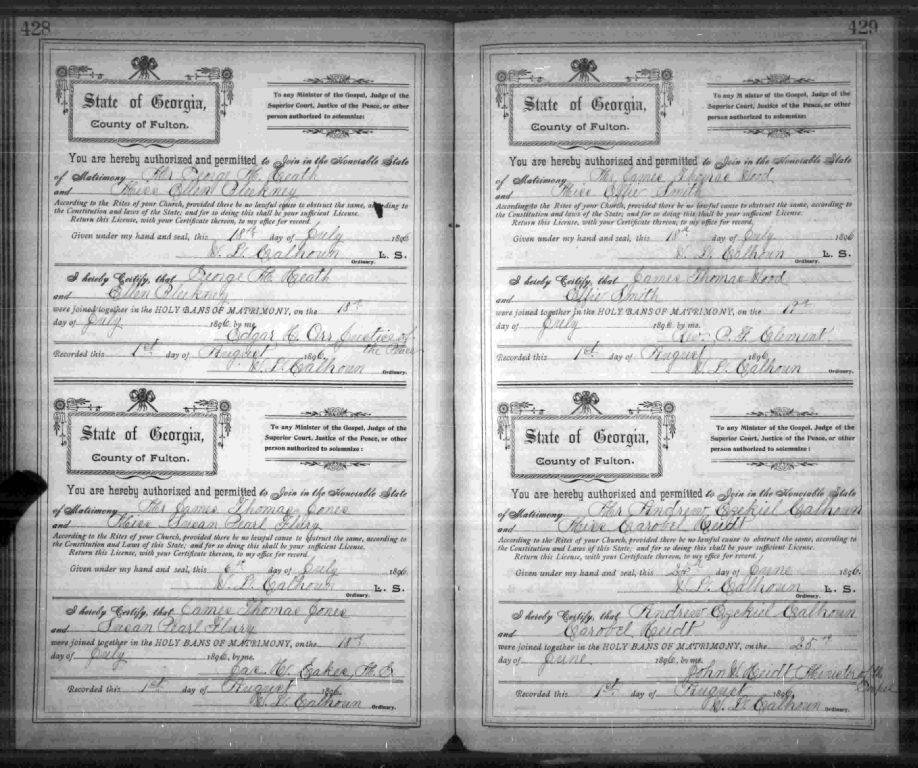 428
State of Georgia,
County of Fulton.
To any Minister of the Gospel, Judge of the
Superior Court, Justice of the Peace, or other
person authorized to solemnize:
You are hereby authorized and permitted to Join in the Honorable State
of Matrimony Mr George H. Heath
and Miss Ellen Pinkney
According to the Rites of your Church, provided there be no lawful cause to obstruct the same, according to
the Constitution and laws of the State; and for so doing this shall be your sufficient License.
Return this License, with your Certificate thereon, to my office for record.
Given under my hand and seal, this 18th day of July 1896
W. L. Calhoun L. S.
Ordinary.
I hereby Certify, that George H. Heath
and Ellen Pinkney
were joined together in the HOLY BANS OF MATRIMONY, on the 18th
day of July 1896 by me.
Edgar H. Orr Justice of
the Peace
Recorded this 1st day of August 1896
W. L. Calhoun
Ordinary.
State of Georgia,
County of Fulton.
To any Minister of the Gospel, Judge of the
Superior Court, Justice of the Peace, or other
person authorized to solemnize:
You are hereby authorized and permitted to Join in the Honorable State
of Matrimony Mr James Thomas Jones
and Miss Susan Pearl Flury
According to the Rites of your Church, provided there be no lawful cause to obstruct the same, according to
the Constitution and Laws of this State; and for so doing this shall be your sufficient License.
Return this License, with your Certificate thereon, to my office for record.
Given under my hand and seal, this 6th day of July 1896
W. L. Calhoun L. S.
Ordinary.
I hereby Certify, that James Thomas Jones
and Susan Pearl Flury
were joined together in the HOLY BANS OF MATRIMONY, on the 18th
day of July 1896, by me.
Jas. H. Eakes M. G
Recorded this 1st day of August 1896
W. L. Calhoun
Ordinary.
429
State of Georgia,
County of Fulton.
To any Minister of the Gospel, Judge of the
Superior Court, Justice of the Peace, or other
person authorized to solemnize:
You are hereby authorized and permitted to Join in the Honorable State
of Matrimony Mr James Thomas Hood
and Miss Effie Smith
According to the Rites of your Church, provided there be no lawful cause to obstruct the same, according to
the Constitution and laws of this State; and for so doing this shall be your sufficient License.
Return this License, with your Certificate thereon, to my office for record.
Given under my hand and seal, this 18th day of July 1896
W. L. Calhoun L. S.
Ordinary.
I hereby Certify, that James Thomas Hood
and Effie Smith
were joined together in the HOLY BANS OF MATRIMONY, on the
day of July 1896 by me.
Rev. Clement
Recorded this 1st day of August 1896
W. L. Calhoun
Ordinary.
State of Georgia,
County of Fulton.
To any Minister of the Gospel, Judge of the
Superior Court, Justice of the Peace, or other
person authorized to solemnize:
You are hereby authorized and permitted to Join in the Honorable State
of Matrimony Mr Andrew Ezekiel Calhoun
and Miss Carobel Heidt
According to the Rites of your Church, provided there be no lawful cause to obstruct the same, according to
the Constitution and Laws of this State; and for so doing this shall be your sufficient License.
Return this License, with your Certificate thereon, to my office for record.
Given under my hand and seal, this day of June 1896.
W. L. Calhoun L. S.
Ordinary.
I hereby Certify, that Andrew Ezekiel Calhoun
and Carobel Heidt
were joined together in the HOLY BANS OF MATRIMONY, on the 25th
day of June 1896, by me.
John W. Heidt Minister of the
Gospel
Recorded this 1st day of August 1896
W. L. Calhoun
Ordinary.